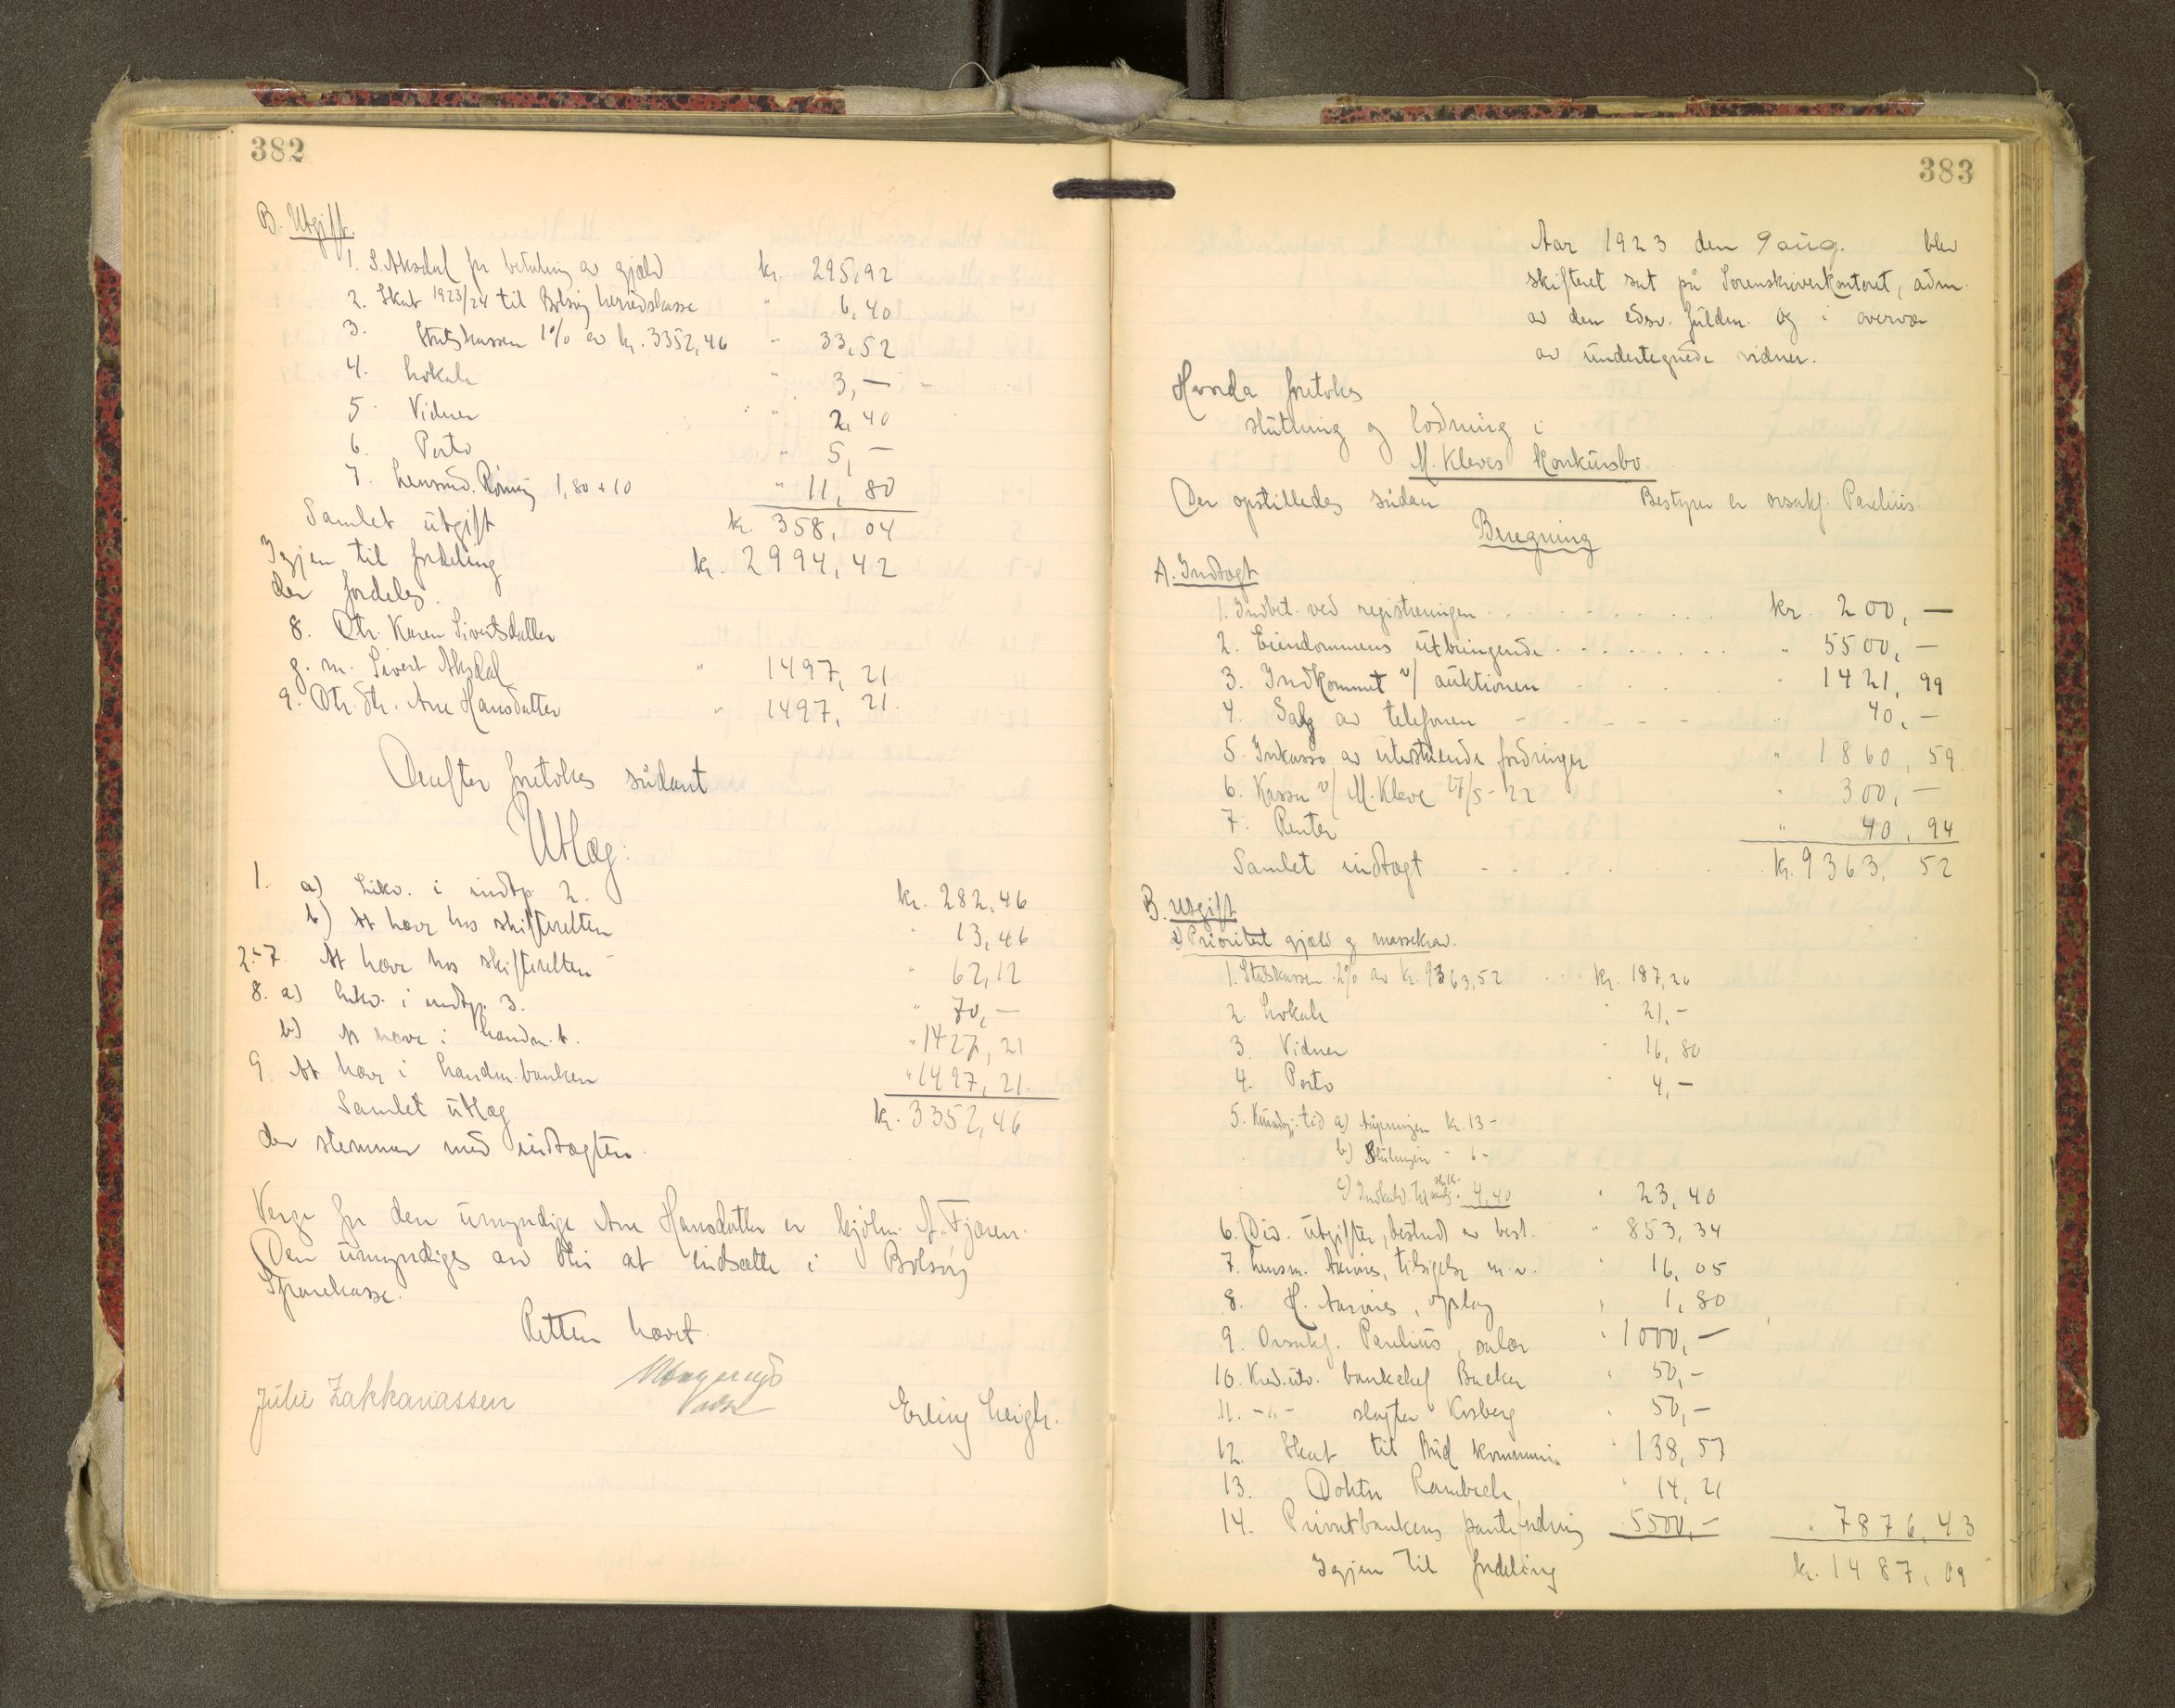 382
B. Utgift.
1. S. Aksdal for betaling av gjæld kr. 295,92
2. Skat 1923/24 til Bolsøy herredskasse " 6,40
3. Statskassen 1% av kr. 3352,46 " 33,52
4. Lokale " 3,—
5. Vidner " 2,40
6. Porto " 5,—
7. Lensmd. 1,80 + 10 " 11,80
Samlet utgift kr. 358,04
Igjen til fordeling kr. 2994,42
der fordeles.
8. Dtr. Karen Sivertsdatter
g. m. Sivert Aksdal " 1497,21
9. Dtr. dtr. Ane Hansdatter " 1497,21.
Derefter foretokes sådant
Utlæg:
1. a) Likv. i indtp. 2. kr. 282,46
b) At hæve hos skifteretten " 13,46
2-7. At hæve hos skifteretten " 62,12
8. a) Likv. i indtp. 3. " 70,—
b) At hæve i handm. b. " 1427,21
9. At hæve i handm. banken " 1497,21.
Samlet utlæg kr. 3352,46
der stemmer med indtægten.
Verge for den umyndige Ane Hansdatter er A. Fjæren.
Den umyndiges arv blir at indsætte i Bolsøy
Sparekasse.
Retten hævet.
Julie Zakkariassen
Erling Leigh.
383
Aar 1923 den 9 aug. blev
skifteret sat på Sorenskriverkontoret, adm.
av den edsv. fuldm. og i overvær
av undertegnede vidner.
Hvorda foretokes
slutning og lodning i
M. Kleves konkursbo.
Der opstilledes sådan Bestyrer er orsakf. Parelius.
Beregning
A. Indtægt
1. Indbet. ved registreringen kr. 200,—
2. Eiendommens utbringende " 5500,—
3. Indkommet v/ auktionen " 1421,99
4. Salg av telefonen " 40,—
5. Inkasso av utestående fordringer " 1860,59.
6. Kassa v/ M. Kleve 27/5-22 " 300,—
7. Renter " 40,94
Samlet indtægt kr. 9363,52
B. Utgift
a) Prioritert gjæld og massekrav.
1. Statskassen 2% av kr. 9363,52 kr. 187,26
2. Lokale " 21,—
3. Vidner " 16,80
4. Porto " 4,—
5. Kundgj. tid a) Åpningen kr. 13-
b) Slutningen - 6-
c) Indkald. til 4,40 " 23,40
6. Div. utgifter, bestridt av best. " 853,34
7. Lensm. Aarnes, tilsigelse m.v. " 16,05
8. H. Aarnes, opslag " 1,80
9. Orsakf. Parelius, salær " 1000,—
10. Kred.utv. banksjef Backer " 50,—
11. -"- slagter Kosberg " 50,—
12. Skat til Bud kommune " 138,57
13. Doktor Rambech " 14,21
14. Privatbankens pantefordring 5500,— " 7876,43
Igjen til fordeling kr. 1487,09